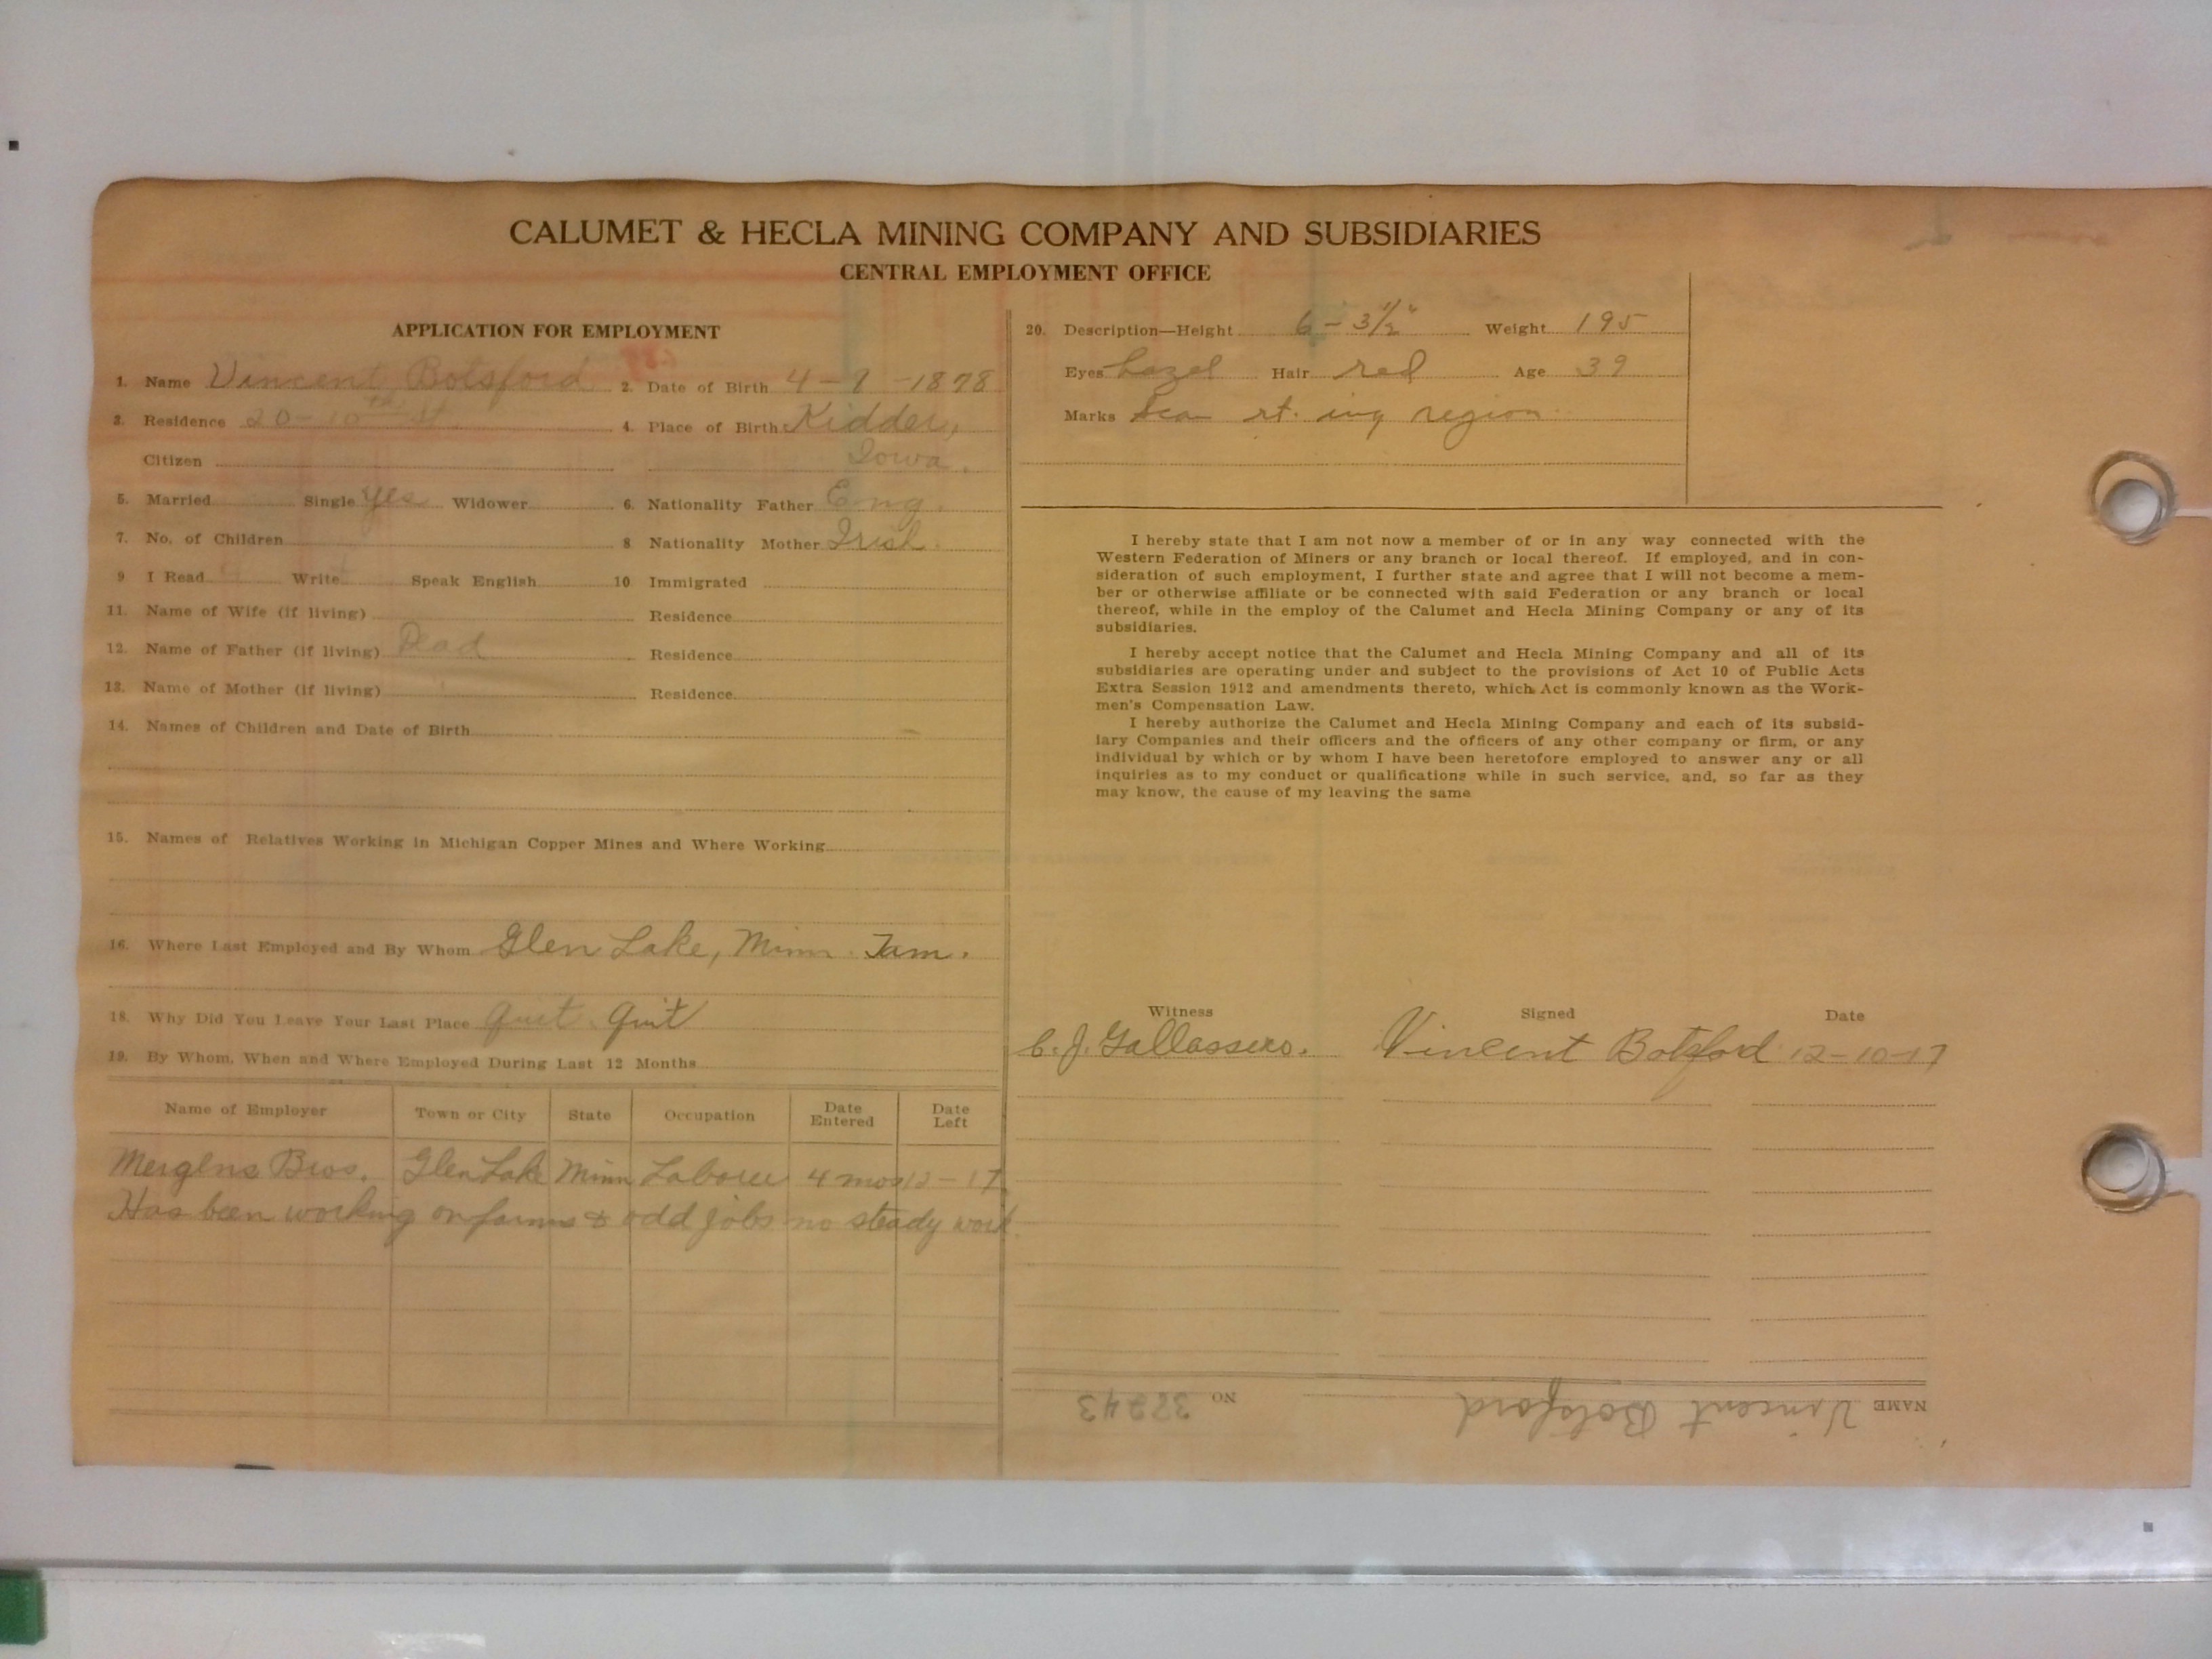 CALUMET & HECLA MINING COMPANY AND SUBSIDIARIES
CENTRAL EMPLOYMENT OFFICE
APPLICATION FOR EMPLOYMENT
1. Name Vincent Botsford 2. Date of Birth 4-7-1878
3. Residence 20-10th St. 4. Place of Birth Kidder,
Citizen Iowa.
5. Married Single yes Widower 6. Nationality Father Eng.
7. No. of Children 8 Nationality Mother Irish.
9 I Read Write Speak English 10 Immigrated
11. Name of Wife (if living) Residence
12. Name of Father (if living) Dead Residence
13. Name of Mother (if living) " Residence
14. Names of Children and Date of Birth
15. Names of Relatives Working in Michigan Copper Mines and Where Working
16. Where Last Employed and By Whom Glen Lake, Minn.
18. Why Did You Leave Your Last Place Quit. Quit
19. By Whom, When and Where Employed During Last 12 Months
Name of Employer Town or City State Occupation Date Entered Date Left
Merglns Bros. Glen Lake Minn Laborer 4 mos 12-17
Has been working on farms & odd jobs no steady work.
20. Description—Height 6-3½" Weight 195
Eyes hazel Hair red Age 39
Marks Scar rt. ing region
I hereby state that I am not now a member of or in any way connected with the
Western Federation of Miners or any branch or local thereof. If employed, and in con-
sideration of such employment, I further state and agree that I will not become a mem-
ber or otherwise affiliate or be connected with said Federation or any branch or local
thereof, while in the employ of the Calumet and Hecla Mining Company or any of its
subsidiaries.
I hereby accept notice that the Calumet and Hecla Mining Company and all of its
subsidiaries are operating under and subject to the provisions of Act 10 of Public Acts
Extra Session 1912 and amendments thereto, which Act is commonly known as the Work-
men's Compensation Law.
I hereby authorize the Calumet and Hecla Mining Company and each of its subsid-
iary Companies and their officers and the officers of any other company or firm, or any
individual by which or by whom I have been heretofore employed to answer any or all
inquiries as to my conduct or qualifications while in such service, and, so far as they
may know, the cause of my leaving the same
Witness Signed Date
C. J. Gallassero. Vincent Botsford 12-10-17
NAME Vincent Botsford NO 32243